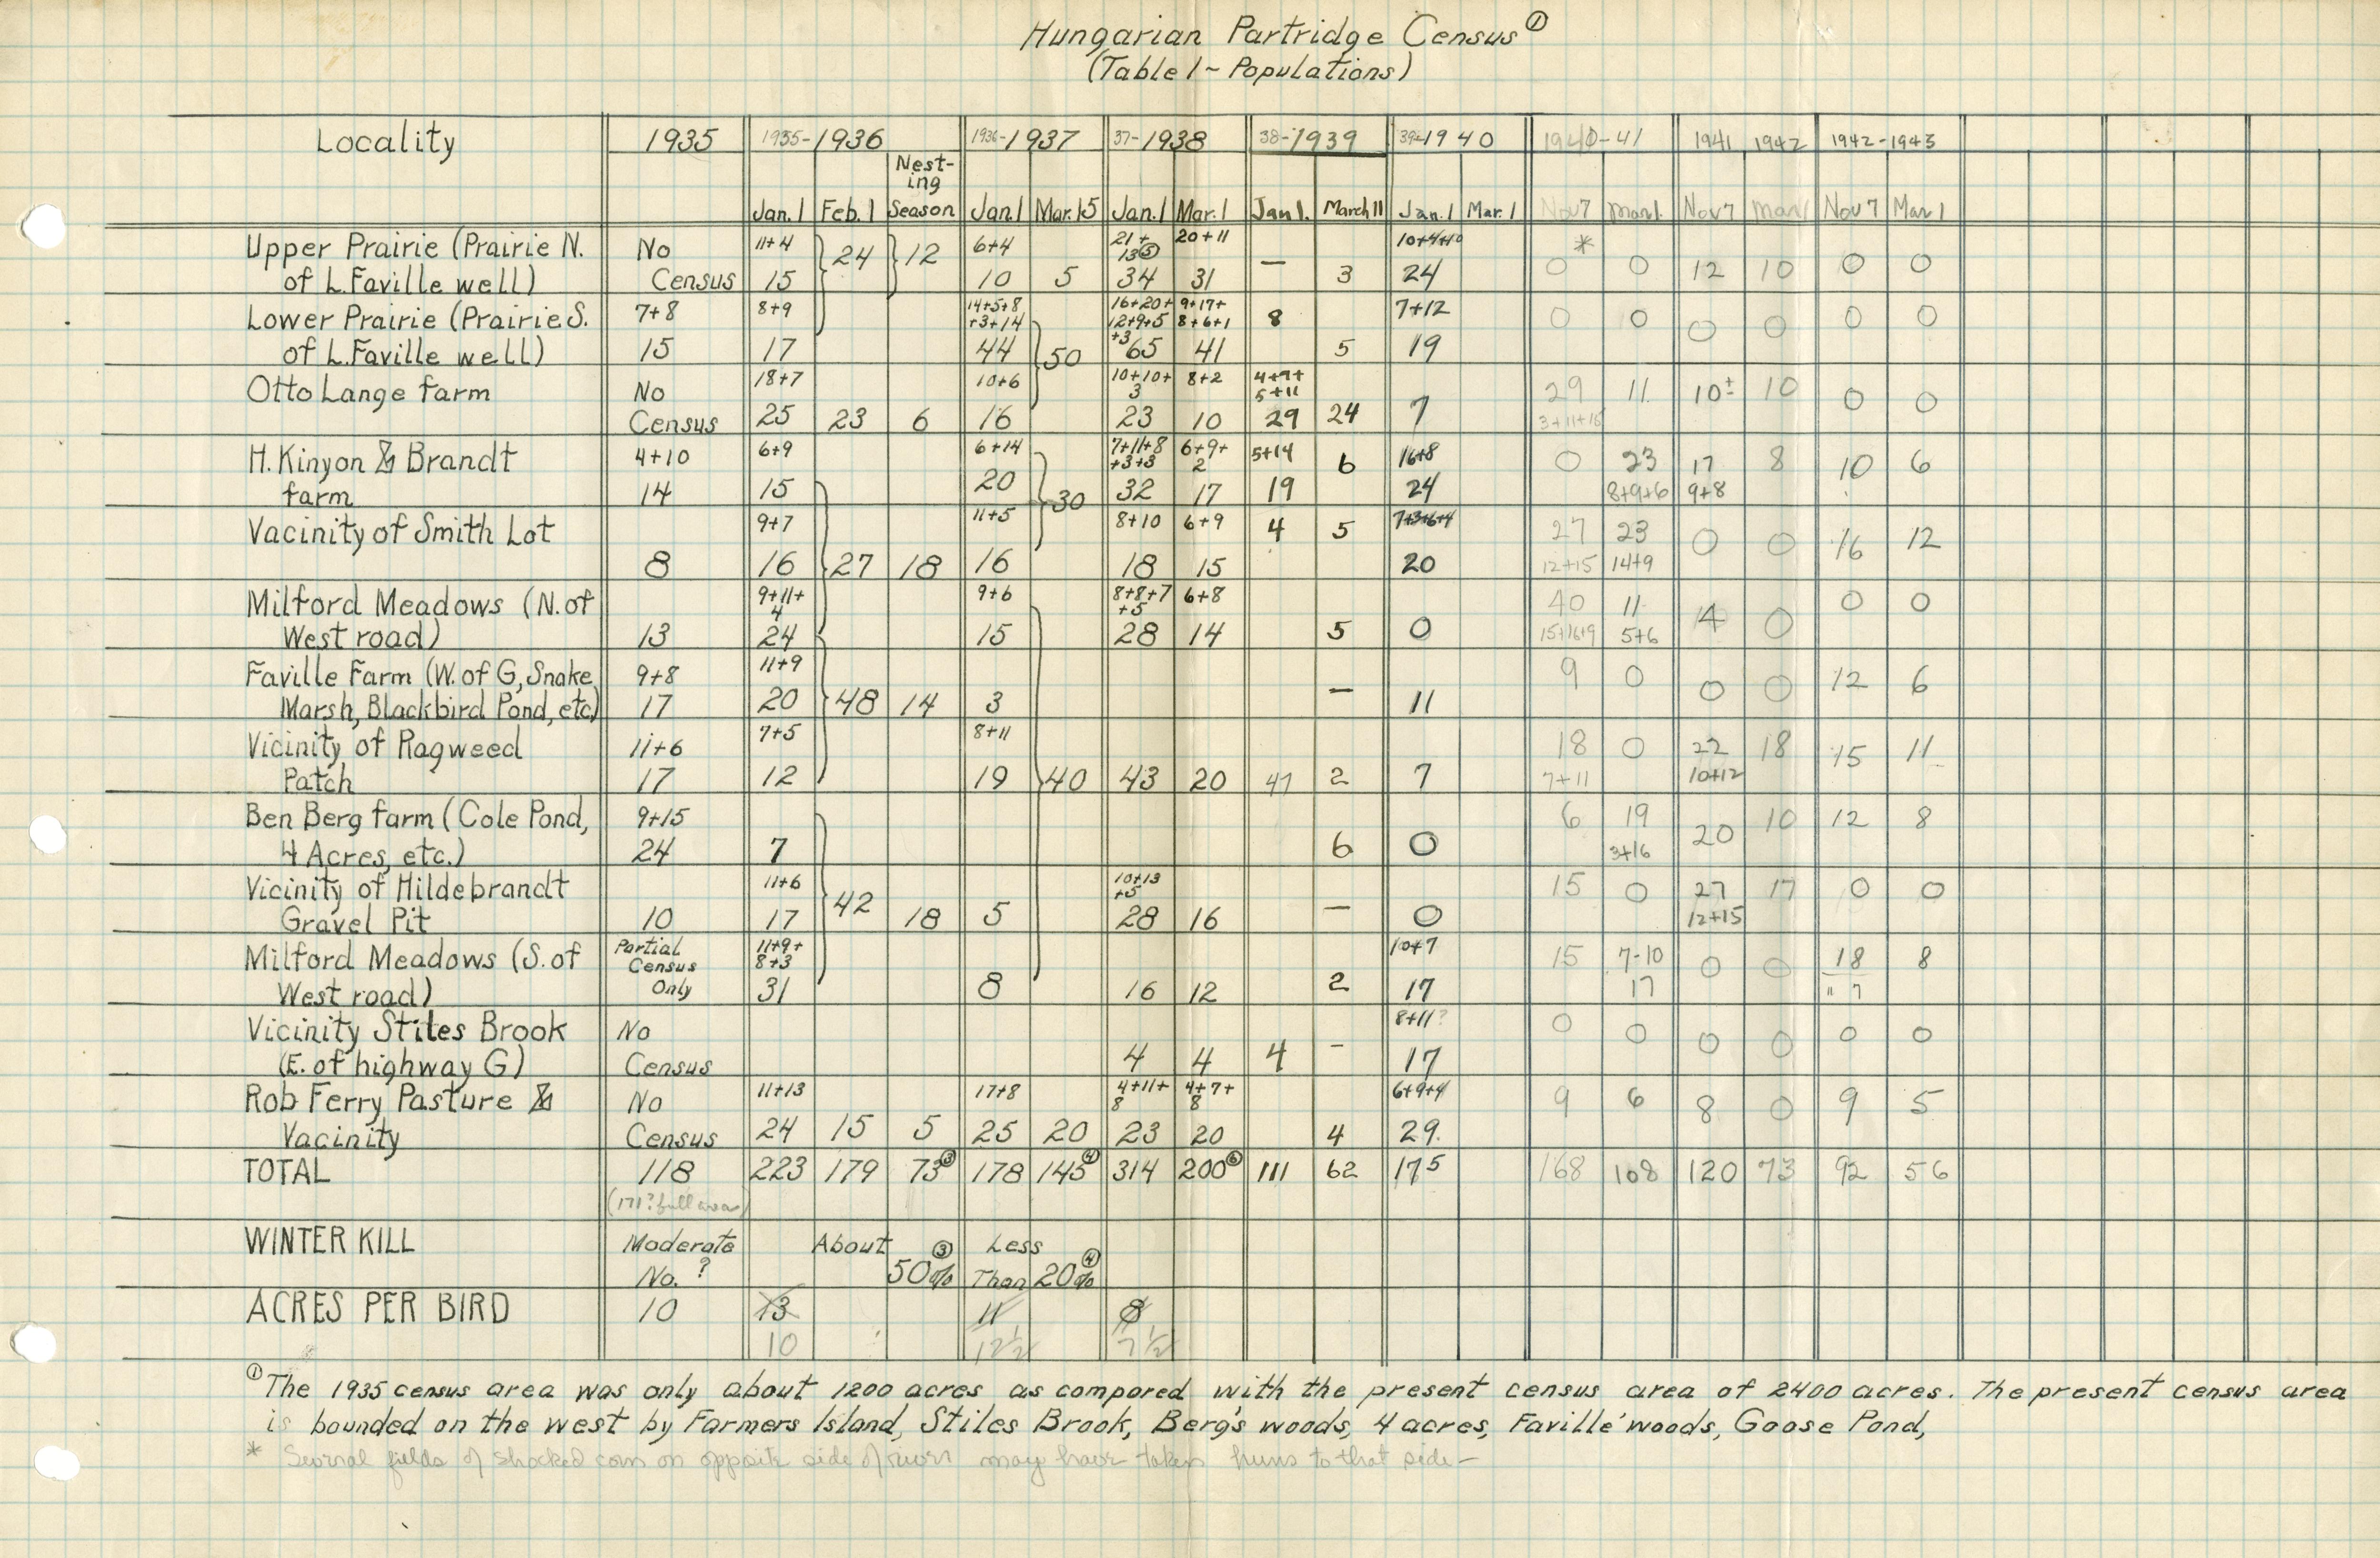 Hungarian Partridge Census ①
(Table 1 ~ Populations)
Locality 1935 1935-1936 1936-1937 37-1938 38-1939 39-1940 1940-41 1941 1942 1942-1943
Nest-
ing
Jan. 1 Feb. 1 Season Jan. 1 Mar. 15 Jan. 1 Mar. 1 Jan 1. March 11 Jan. 1 Mar. 1 Nov 7 Mar 1. Nov 7 Mar 1 Nov 7 Mar 1
Upper Prairie (Prairie N. No 11+4 24 12 6+4 21+ 20+11 10+4+10 *
13⑤
of L. Faville well) Census 15 10 5 34 31 — 3 24 0 0 12 10 0 0
Lower Prairie (Prairie S. 7+8 8+9 14+5+8 16+20+ 9+17+ 7+12
+3+14 12+9+5 8+6+1 8 0 0 0 0 0 0
+3
of L. Faville well) 15 17 44 50 65 41 5 19
Otto Lange farm No 18+7 10+6 10+10+ 8+2 4+9+ 29 11 10± 10
3 5+11
Census 25 23 6 16 23 10 29 24 7 3+11+15 0 0
H. Kinyon & Brandt 4+10 6+9 6+14 7+11+8 6+9+ 5+14 6 16+8 0 23 17 8 10 6
+3+3 2
farm 14 15 20 30 32 17 19 24 8+9+6 9+8
Vacinity of Smith Lot 9+7 11+5 8+10 6+9 4 5 7+3+6+4 27 23 0 0 16 12
8 16 27 18 16 18 15 20 12+15 14+9
Milford Meadows (N. of 9+11+ 9+6 8+8+7 6+8 40 11 0 0
4 +5
West road) 13 24 15 28 14 5 0 15+16+9 5+6 14 0
Faville Farm (W. of G, Snake 9+8 11+9 9 0 0 0 12 6
Marsh, Blackbird Pond, etc.) 17 20 48 14 3 — 11
Vicinity of Ragweed 11+6 7+5 8+11 18 0 22 18 15 11
Patch 17 12 19 40 43 20 47 2 7 7+11 10+12
Ben Berg farm (Cole Pond, 9+15 6 19 20 10 12 8
4 Acres, etc.) 24 7 6 0 3+16
Vicinity of Hildebrandt 11+6 10+13 15 0 27 17 0 0
+5
Gravel Pit 10 17 42 18 5 28 16 — 0 12+15
Milford Meadows (S. of Partial 11+9+ 10+7 15 7-10 0 0 18 8
Census 8+3
West road) Only 31 8 16 12 2 17 17 " 7
Vicinity Stiles Brook No 8+11? 0 0 0 0 0 0
(E. of highway G) Census 4 4 4 - 17
Rob Ferry Pasture & No 11+13 17+8 4+11+ 4+7+ 6+9+4 9 6 8 0 9 5
8 8
Vacinity Census 24 15 5 25 20 23 20 4 29.
TOTAL 118 223 179 73③ 178 145④ 314 200⑥ 111 62 175 168 108 120 73 92 56
(171? full area)
WINTER KILL Moderate About ③ Less ④
No. ? 50% Than 20%
ACRES PER BIRD 10 13 11 8
10 12½ 7½
① The 1935 census area was only about 1200 acres as compared with the present census area of 2400 acres. The present census area
is bounded on the west by Farmers Island, Stiles Brook, Berg's woods, 4 acres, Faville' woods, Goose Pond,
* Several fields of shocked corn on opposite side of river may have taken huns to that side —